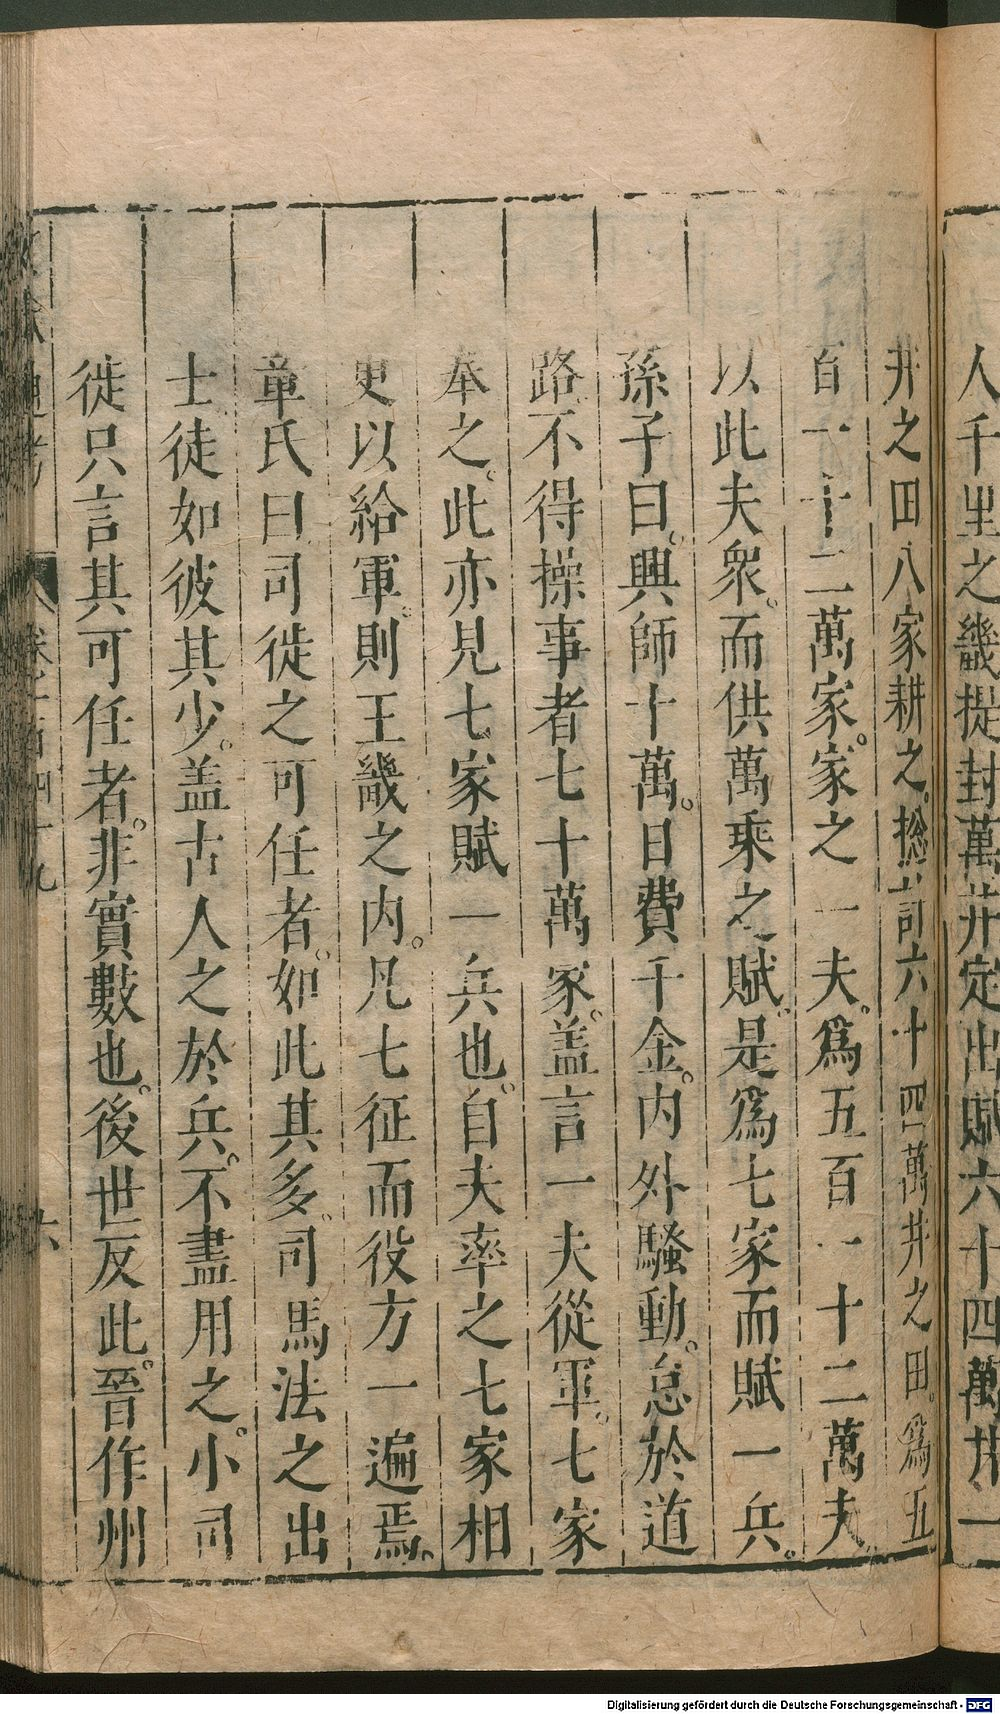 人千里之畿提封萬井定出賦六十四萬井一
井之田八家耕之。摠計六十四萬井之田。爲五
百一十二萬家。家之一夫。爲五百一十二萬夫
以此夫衆。而供萬乘之賦。是爲七家而賦一兵。
孫子曰。興師十萬。日費千金。内外騷動。怠於道
路不得操事者七十萬家。盖言一夫從軍。七家
奉之。此亦見七家賦一兵也。自夫率之七家相
更以給軍。則王畿之内。凡七征而役方一遍焉。
章氏曰司徙之可任者。如此其多。司馬法之出
士徒如彼其少。盖古人之於兵。不盡用之。小司
徙只言其可任者。非實數也。後世反此。晉作州
Digitalisierung gefördert durch die Deutsche Forschungsgemeinschaft - DFG